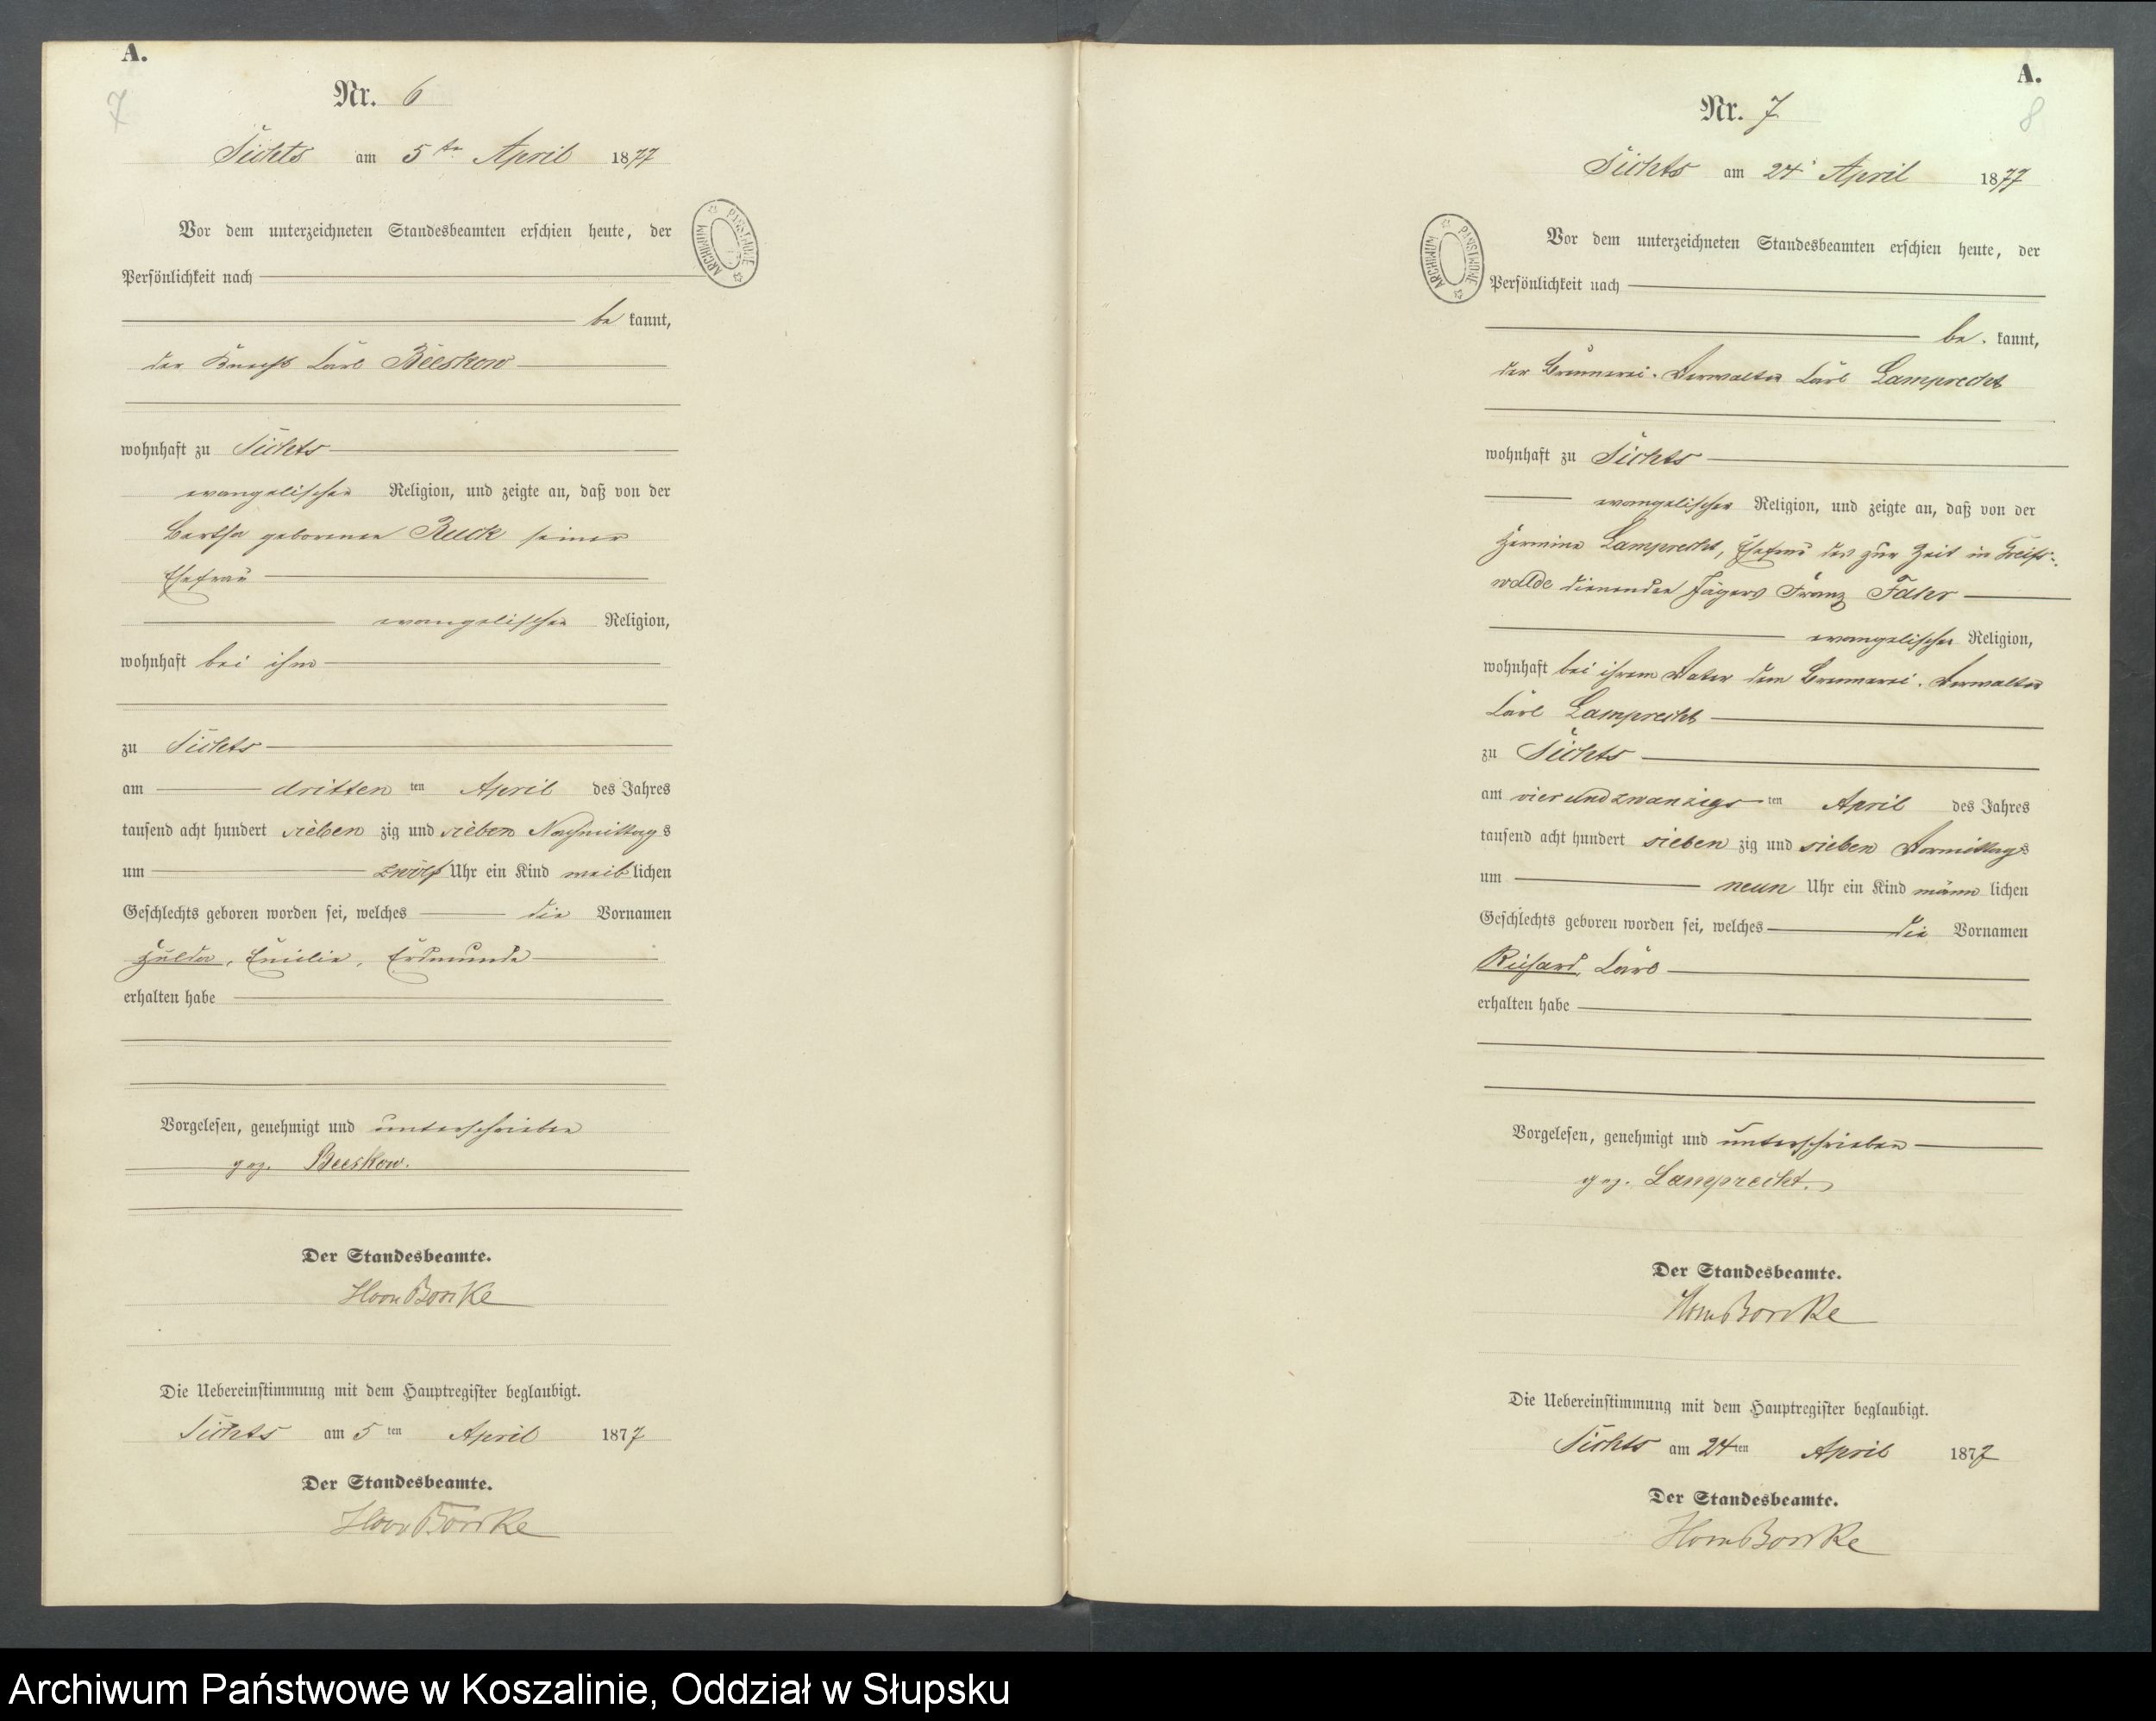 A.
7
Nr. 6
Tichts am 5ten April 1877
Vor dem unterzeichneten Standesbeamten erschien heute, der
Persönlichkeit nach
be kannt,
der Knecht Carl Beeskow
wohnhaft zu Tichts
evangelischer Religion, und zeigte an, daß von der
Bertha geborenen Ruck seiner
Ehefrau
evangelischer Religion,
wohnhaft bei ihm
zu Tichts
am dritten ten April des Jahres
tausend acht hundert sieben zig und sieben Nachmittags
um zwölf Uhr ein Kind weib lichen
Geschlechts geboren worden sei, welches die Vornamen
Hulda, Emilie, Erdmunde
erhalten habe
Vorgelesen, genehmigt und unterschrieben
gez. Beeskow.
Der Standesbeamte.
HvonBorcke
Die Uebereinstimmung mit dem Hauptregister beglaubigt.
Tichts am 5 ten April 1877
Der Standesbeamte.
HvonBorcke
ARCHIWUM PAŃSTWOWE
A.
8
Nr. 7
Tichts am 24 April 1877
Vor dem unterzeichneten Standesbeamten erschien heute, der
Persönlichkeit nach
be. kannt,
der Brennerei-Verwalter Carl Lamprecht
wohnhaft zu Tichts
evangelischer Religion, und zeigte an, daß von der
Hermine Lamprecht, Ehefrau des zur Zeit in Greifs-
walde dienenden Jägers Franz Fahr
evangelischer Religion,
wohnhaft bei ihrem Vater dem Brennerei-Verwalter
Carl Lamprecht
zu Tichts
am vierundzwanzigs ten April des Jahres
tausend acht hundert sieben zig und sieben Vormittags
um neun Uhr ein Kind männ lichen
Geschlechts geboren worden sei, welches die Vornamen
Richard, Carl
erhalten habe
Vorgelesen, genehmigt und unterschrieben
gez. Lamprecht.
Der Standesbeamte.
HvonBorcke
Die Uebereinstimmung mit dem Hauptregister beglaubigt.
Tichts am 24ten April 1877
Der Standesbeamte.
HvonBorcke
ARCHIWUM PAŃSTWOWE
Archiwum Państwowe w Koszalinie, Oddział w Słupsku